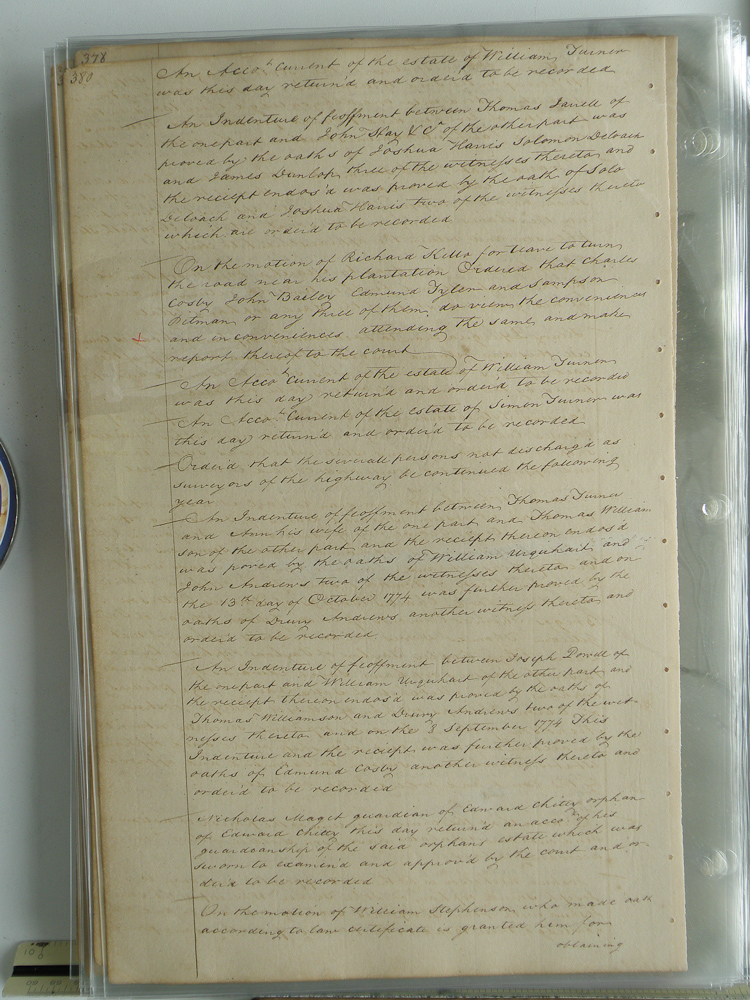 378
380
An Acco.t Current of the estate of William Turner
was this day return'd and order'd to be recorded
An Indenture of feoffment between Thomas Jarrell of
the one part and John Hay & C.o of the other part was
proved by the oaths of Joshua Harris Solomon Deloach
and James Dunlop three of the witnesses thereto and
the reciept endos'd was proved by the oath of Solo
Deloach and Joshua Harris two of the witnesses thereto
which are order'd to be recorded
On the motion of Richard Kello for leave to turn
the road near his plantation Ordered that Charles
Cosby John Bailey Edmund Tyler and Sampson
Pitman or any three of them, do view the conveniences
and inconveniences attending the same, and make
report thereof to the court
An Acco.t Current of the estate of William Turner
was this day return'd and order'd to be recorded
An Acco.t Current of the estate of Simon Turner was
this day return'd and order'd to be recorded
Order'd that the severale persons not discharg'd as
surveyors of the highway be continued the following
year
An Indenture of feoffment between Thomas Turner
and Ann his wife of the one part and Thomas William
son of the other part and the reciept thereon endos'd
was proved by the oaths of William Urquhart and
John Andrews two of the witnesses thereto and on
the 13th day of October 1774 was further proved by the
oaths of Drury Andrews another witness thereto and
order'd to be recorded
An Indenture of feoffment between Joseph Powell of
the one part and William Urquhart of the other part and
the receipt thereon endos'd was proved by the oaths of
Thomas Williamson and Drury Andrews two of the wit-
nesses thereto and on the 8 September 1774 This
Indenture and the reciept was further proved by the
oaths of Edmund Cosby another witness thereto and
order'd to be recorded
Nicholas Maget guardian of Edward Chitty orphan
of Edward Chitty this day return'd an acco.t of his
guardeanship of the said orphans estate which was
sworn to examin'd and approv'd by the court and or
der'd to be recorded
On the motion of William Stephenson who made oath
according to law certificate is granted him for
obtaining